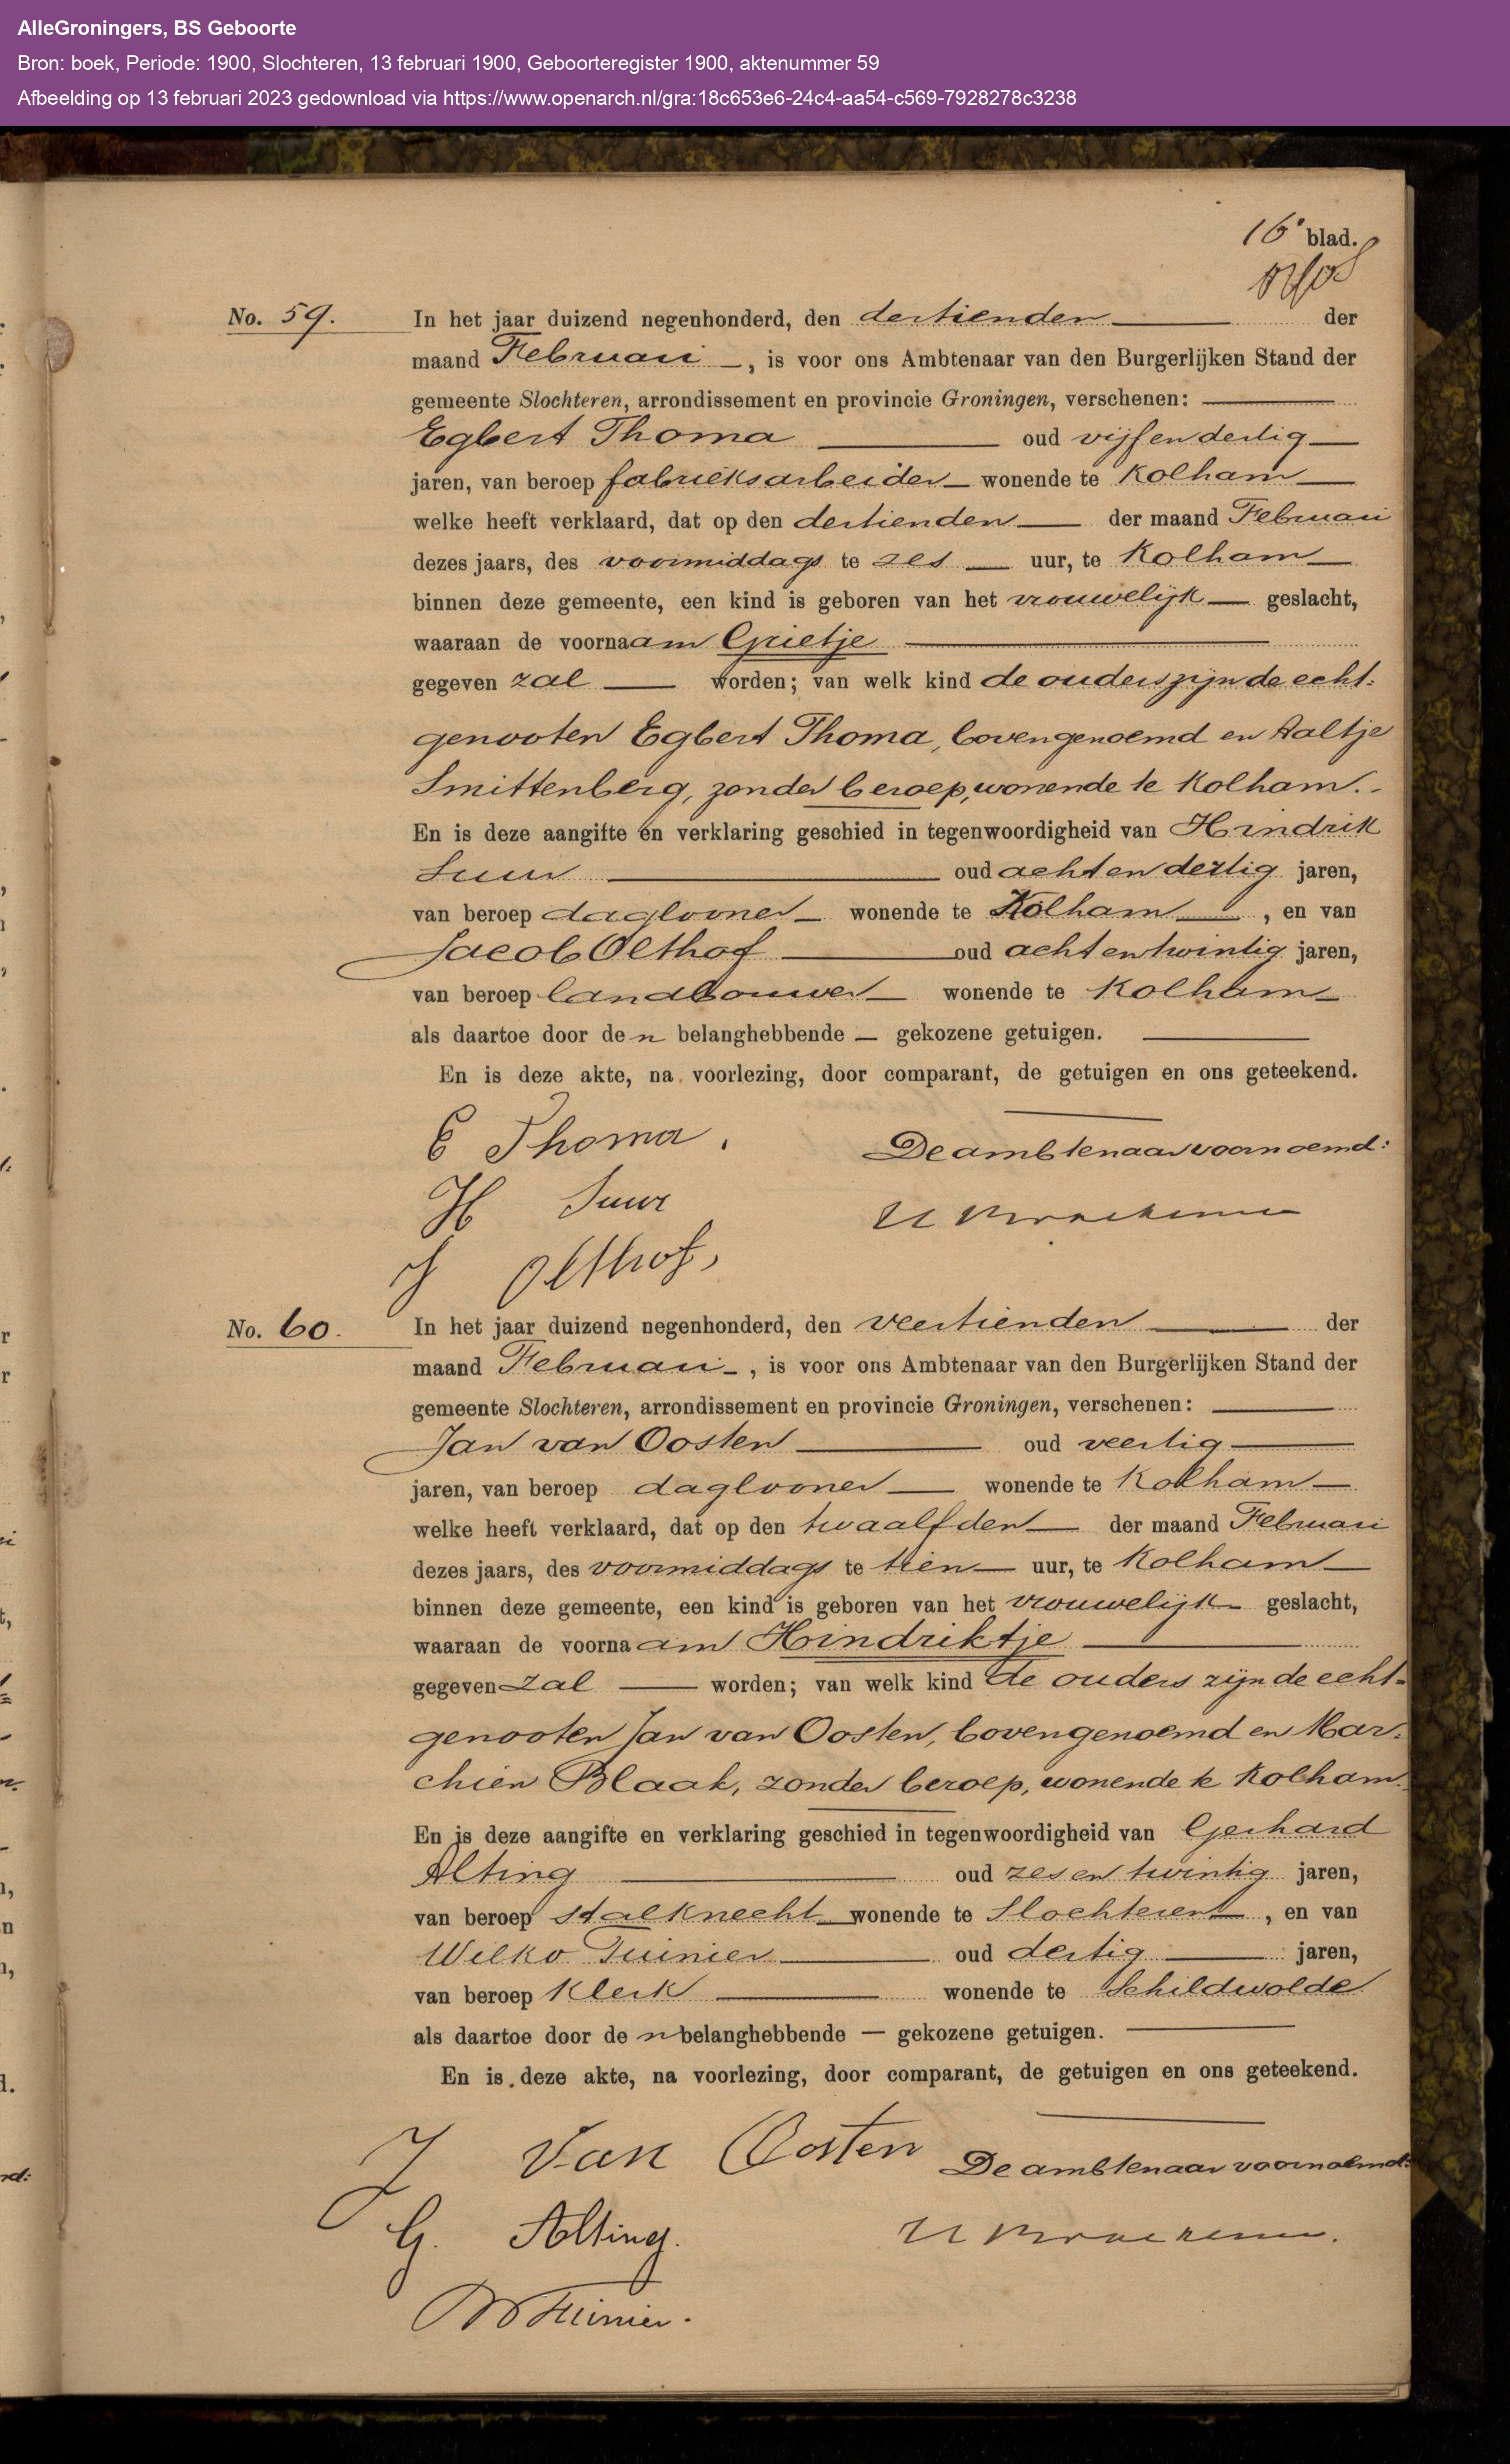 AlleGroningers, BS Geboorte
Bron: boek, Periode: 1900, Slochteren, 13 februari 1900, Geboorteregister 1900, aktenummer 59
Afbeelding op 13 februari 2023 gedownload via https://www.openarch.nl/gra:18c653e6-24c4-aa54-c569-7928278c3238
16e blad.
No. 59. In het jaar duizend negenhonderd, den dertienden der
maand Februari, is voor ons Ambtenaar van den Burgerlijken Stand der
gemeente Slochteren, arrondissement en provincie Groningen, verschenen:
Egbert Thoma oud vijfendertig
jaren, van beroep fabrieksarbeider wonende te Kolham
welke heeft verklaard, dat op den dertienden der maand Februari
dezes jaars, des voormiddags te zes uur, te Kolham
binnen deze gemeente, een kind is geboren van het vrouwelijk geslacht,
waaraan de voornaam Grietje
gegeven zal worden; van welk kind de ouders zijn de echt=
genooten Egbert Thoma, bovengenoemd en Aaltje
Smittenberg, zonder beroep, wonende te Kolham.
En is deze aangifte en verklaring geschied in tegenwoordigheid van Hindrik
Suur oud achtendertig jaren,
van beroep daglooner wonende te Kolham, en van
Jacob Olthof oud achtentwintig jaren,
van beroep landbouwer wonende te Kolham
als daartoe door den belanghebbende — gekozene getuigen.
En is deze akte, na voorlezing, door comparant, de getuigen en ons geteekend.
E Thoma. De ambtenaar voornoemd:
H Suur
J Olthof,
No. 60. In het jaar duizend negenhonderd, den veertienden der
maand Februari, is voor ons Ambtenaar van den Burgerlijken Stand der
gemeente Slochteren, arrondissement en provincie Groningen, verschenen:
Jan van Oosten oud veertig
jaren, van beroep daglooner wonende te Kolham
welke heeft verklaard, dat op den twaalfden der maand Februari
dezes jaars, des voormiddags te tien uur, te Kolham
binnen deze gemeente, een kind is geboren van het vrouwelijk geslacht,
waaraan de voornaam Hindriktje
gegeven zal worden; van welk kind de ouders zijn de echt=
genooten Jan van Oosten, bovengenoemd en Mar=
chien Blaak, zonder beroep, wonende te Kolham.
En is deze aangifte en verklaring geschied in tegenwoordigheid van Gerhard
Alting oud zesentwintig jaren,
van beroep stalknecht wonende te Slochteren, en van
Wilko Tuinier oud dertig jaren,
van beroep klerk wonende te Schildwolde
als daartoe door den belanghebbende — gekozene getuigen.
En is deze akte, na voorlezing, door comparant, de getuigen en ons geteekend.
J Van Oosten De ambtenaar voornoemd:
G. Alting.
W Tuinier.